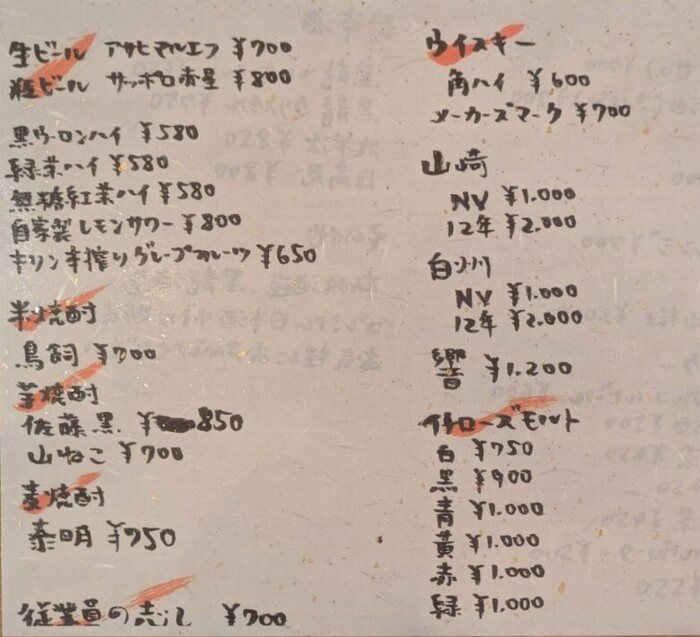 生ビール アサヒマルエフ ¥700
瓶ビール サッポロ赤星 ¥800
黒ウーロンハイ ¥580
緑茶ハイ ¥580
無糖紅茶ハイ ¥580
自家製レモンサワー ¥800
キリン本搾りグレープフルーツ ¥650
米焼酎
鳥飼 ¥700
芋焼酎
佐藤黒 ¥850
山ねこ ¥700
麦焼酎
泰明 ¥750
従業員の志し ¥700
ウイスキー
角ハイ ¥600
メーカーズマーク ¥700
山崎
NV ¥1.000
12年 ¥2.000
白州
NV ¥1.000
12年 ¥2.000
響 ¥1.200
イチローズモルト
白 ¥750
黒 ¥900
青 ¥1.000
黄 ¥1.000
赤 ¥1.000
緑 ¥1.000